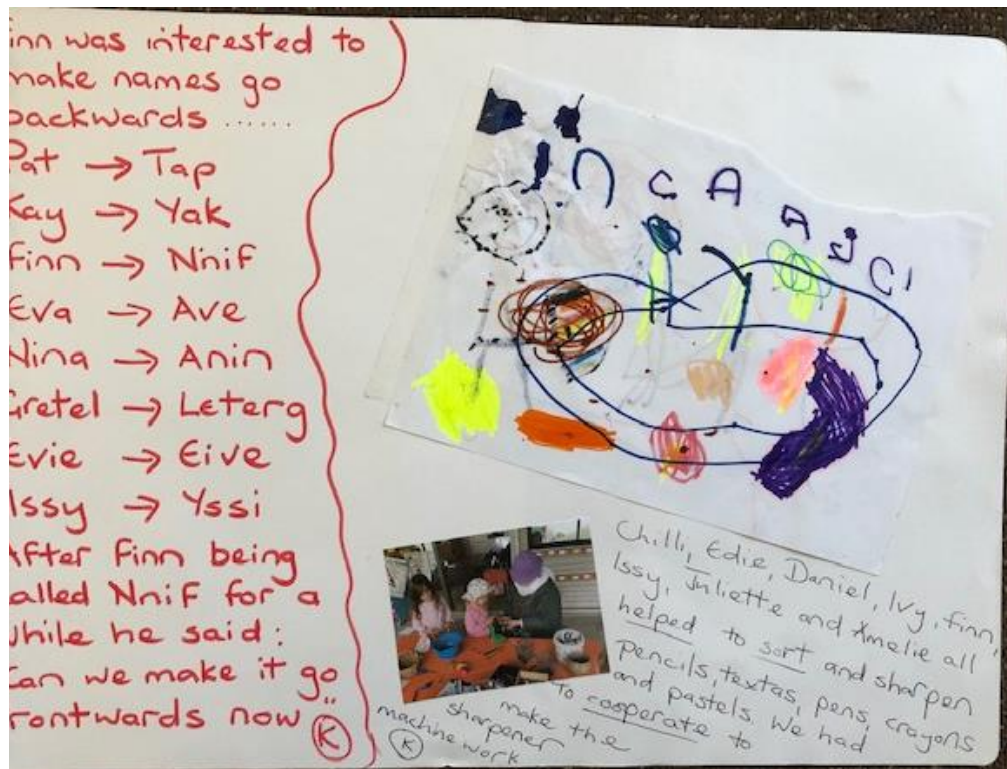 inn was interested to
make names go
backwards ......
Pat → Tap
Kay → Yak
Finn → NniF
Eva → Ave
Nina → Anin
Gretel → Leterg
Evie → Eive
Issy → Yssi
After Finn being
alled NniF for a
while he said:
Can we make it go
rontwards now"
K
n c A A y C
Chilli, Edie, Daniel, Ivy, Finn,
Issy, Juliette and Amelie all
helped to sort and sharpen
pencils, textas, pens, crayons
and pastels. We had
to cooperate to
make the
sharpener
machine work
K